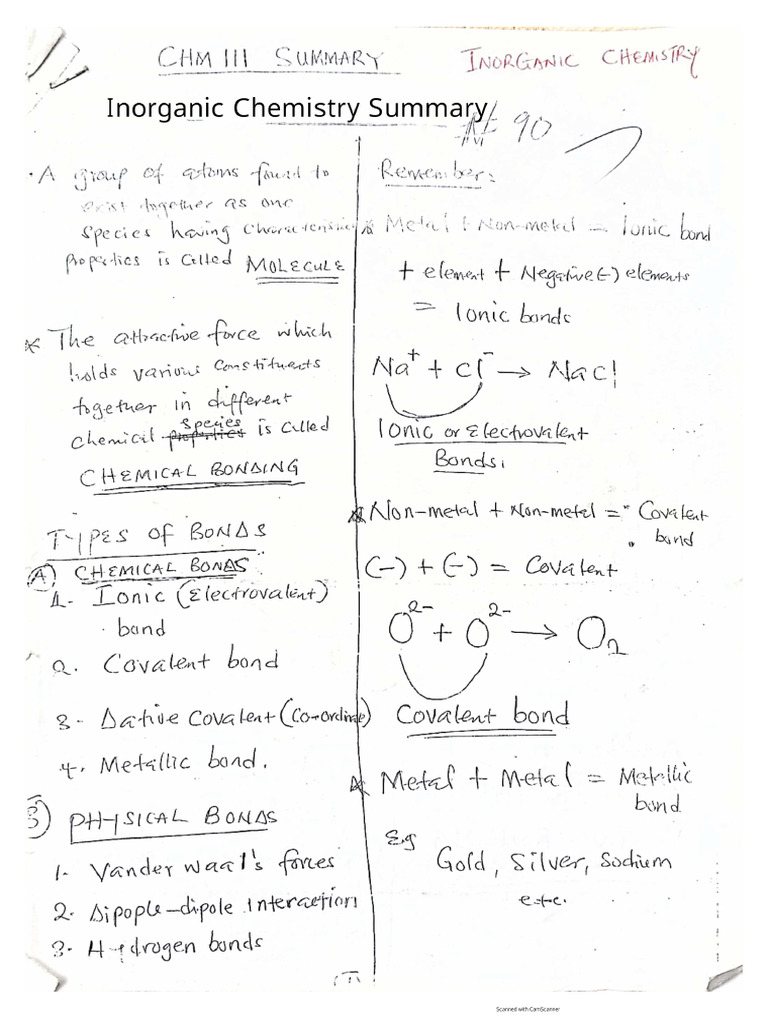 CHM 111 SUMMARY
INORGANIC CHEMISTRY
Inorganic Chemistry Summary
90
• A group of atoms found to
exist together as one
species having characteristics
properties is called MOLECULE
* The attractive force which
holds various constituents
together in different
chemical properties species is called
CHEMICAL BONDING
TYPES OF BONDS
(A) CHEMICAL BONDS
1. Ionic (Electrovalent)
bond
2. Covalent bond
3. Dative Covalent (Co-ordinate)
4. Metallic bond.
(B) PHYSICAL BONDS
1. Vander waal's forces
2. Dipople-dipole interaction
3. Hydrogen bonds
Remember:
* Metal + Non-metal = Ionic bond
+ element + Negative(-) elements
= Ionic bonds
Na⁺ + Cl⁻ → NaCl
Ionic or Electrovalent
Bonds.
* Non-metal + Non-metal = Covalent
bond
(-) + (-) = Covalent
O²⁻ + O²⁻ → O₂
Covalent bond
* Metal + Metal = Metallic
bond
E.g
Gold, Silver, Sodium
e.t.c.
(1)
Scanned with CamScanner